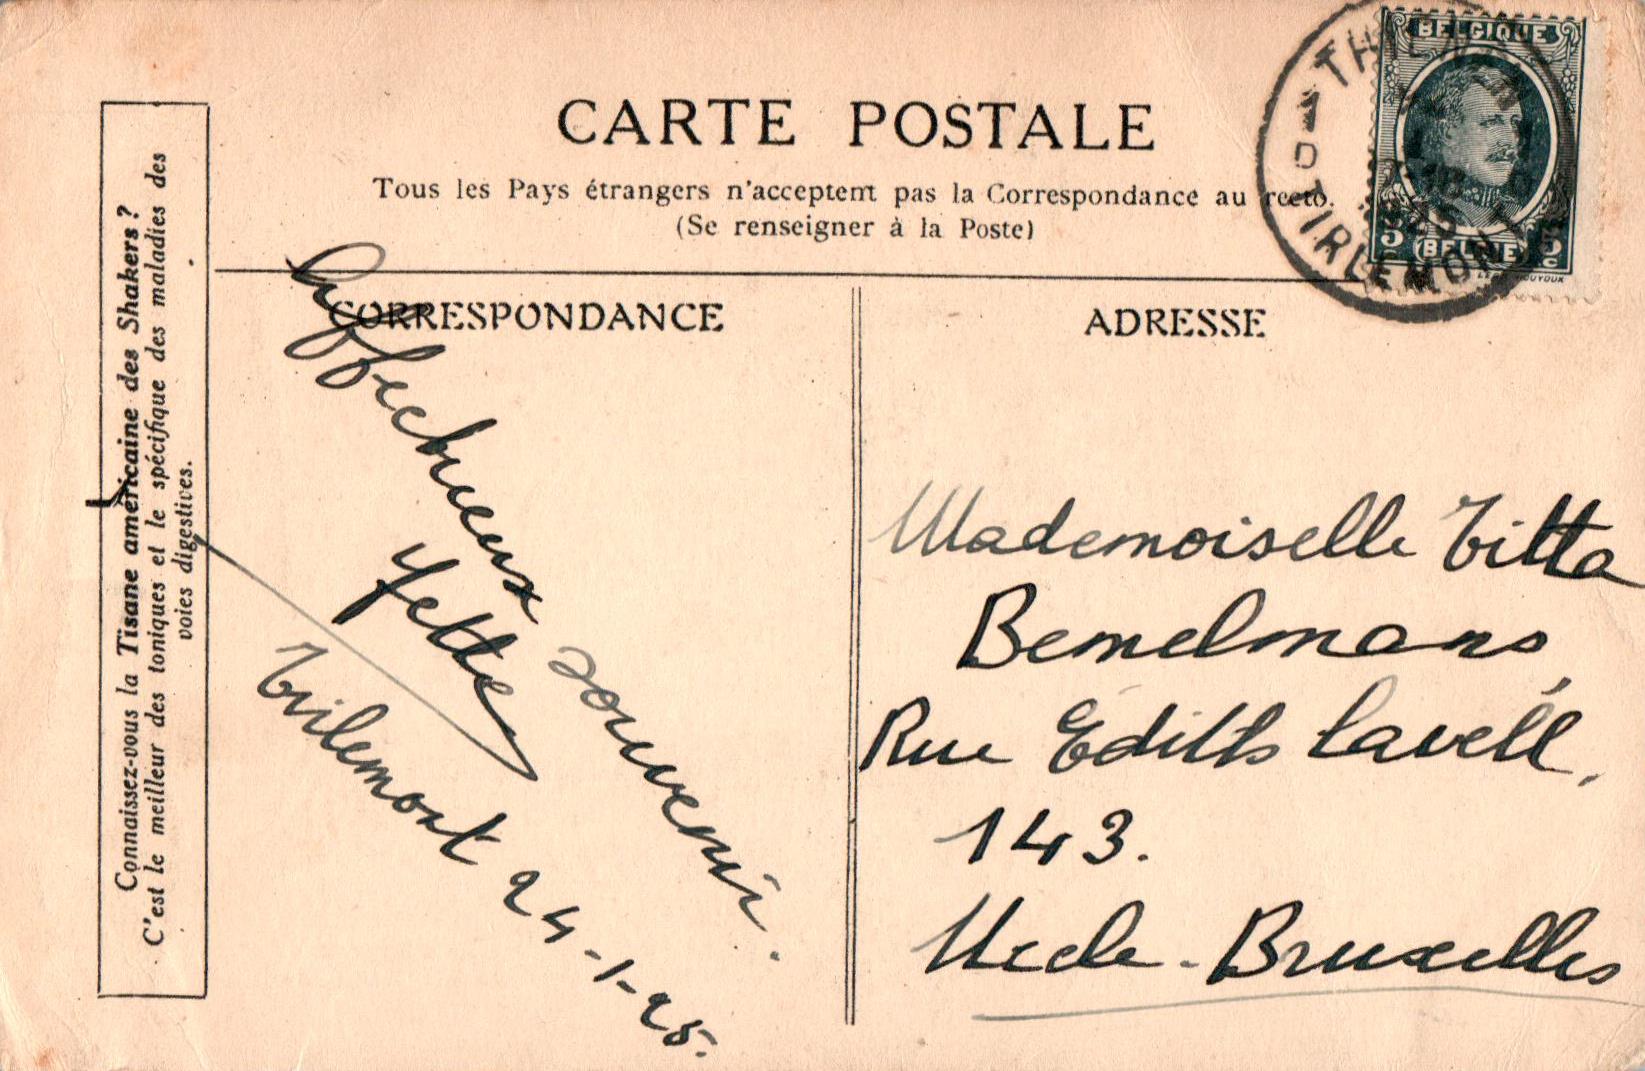 CARTE POSTALE
Tous les Pays étrangers n'acceptent pas la Correspondance au recto.
(Se renseigner à la Poste)
BELGIQUE
BELGIE
TIRLEMONT
CORRESPONDANCE
ADRESSE
Connaissez-vous la Tisane américaine des Shakers ?
C'est le meilleur des toniques et le spécifique des maladies des
voies digestives.
Affectueux souvenir.
Yette
Tirlemont 24-1-25.
Mademoiselle Titta
Bemelmans,
Rue Edith Cavell,
143.
Uccle-Bruxelles